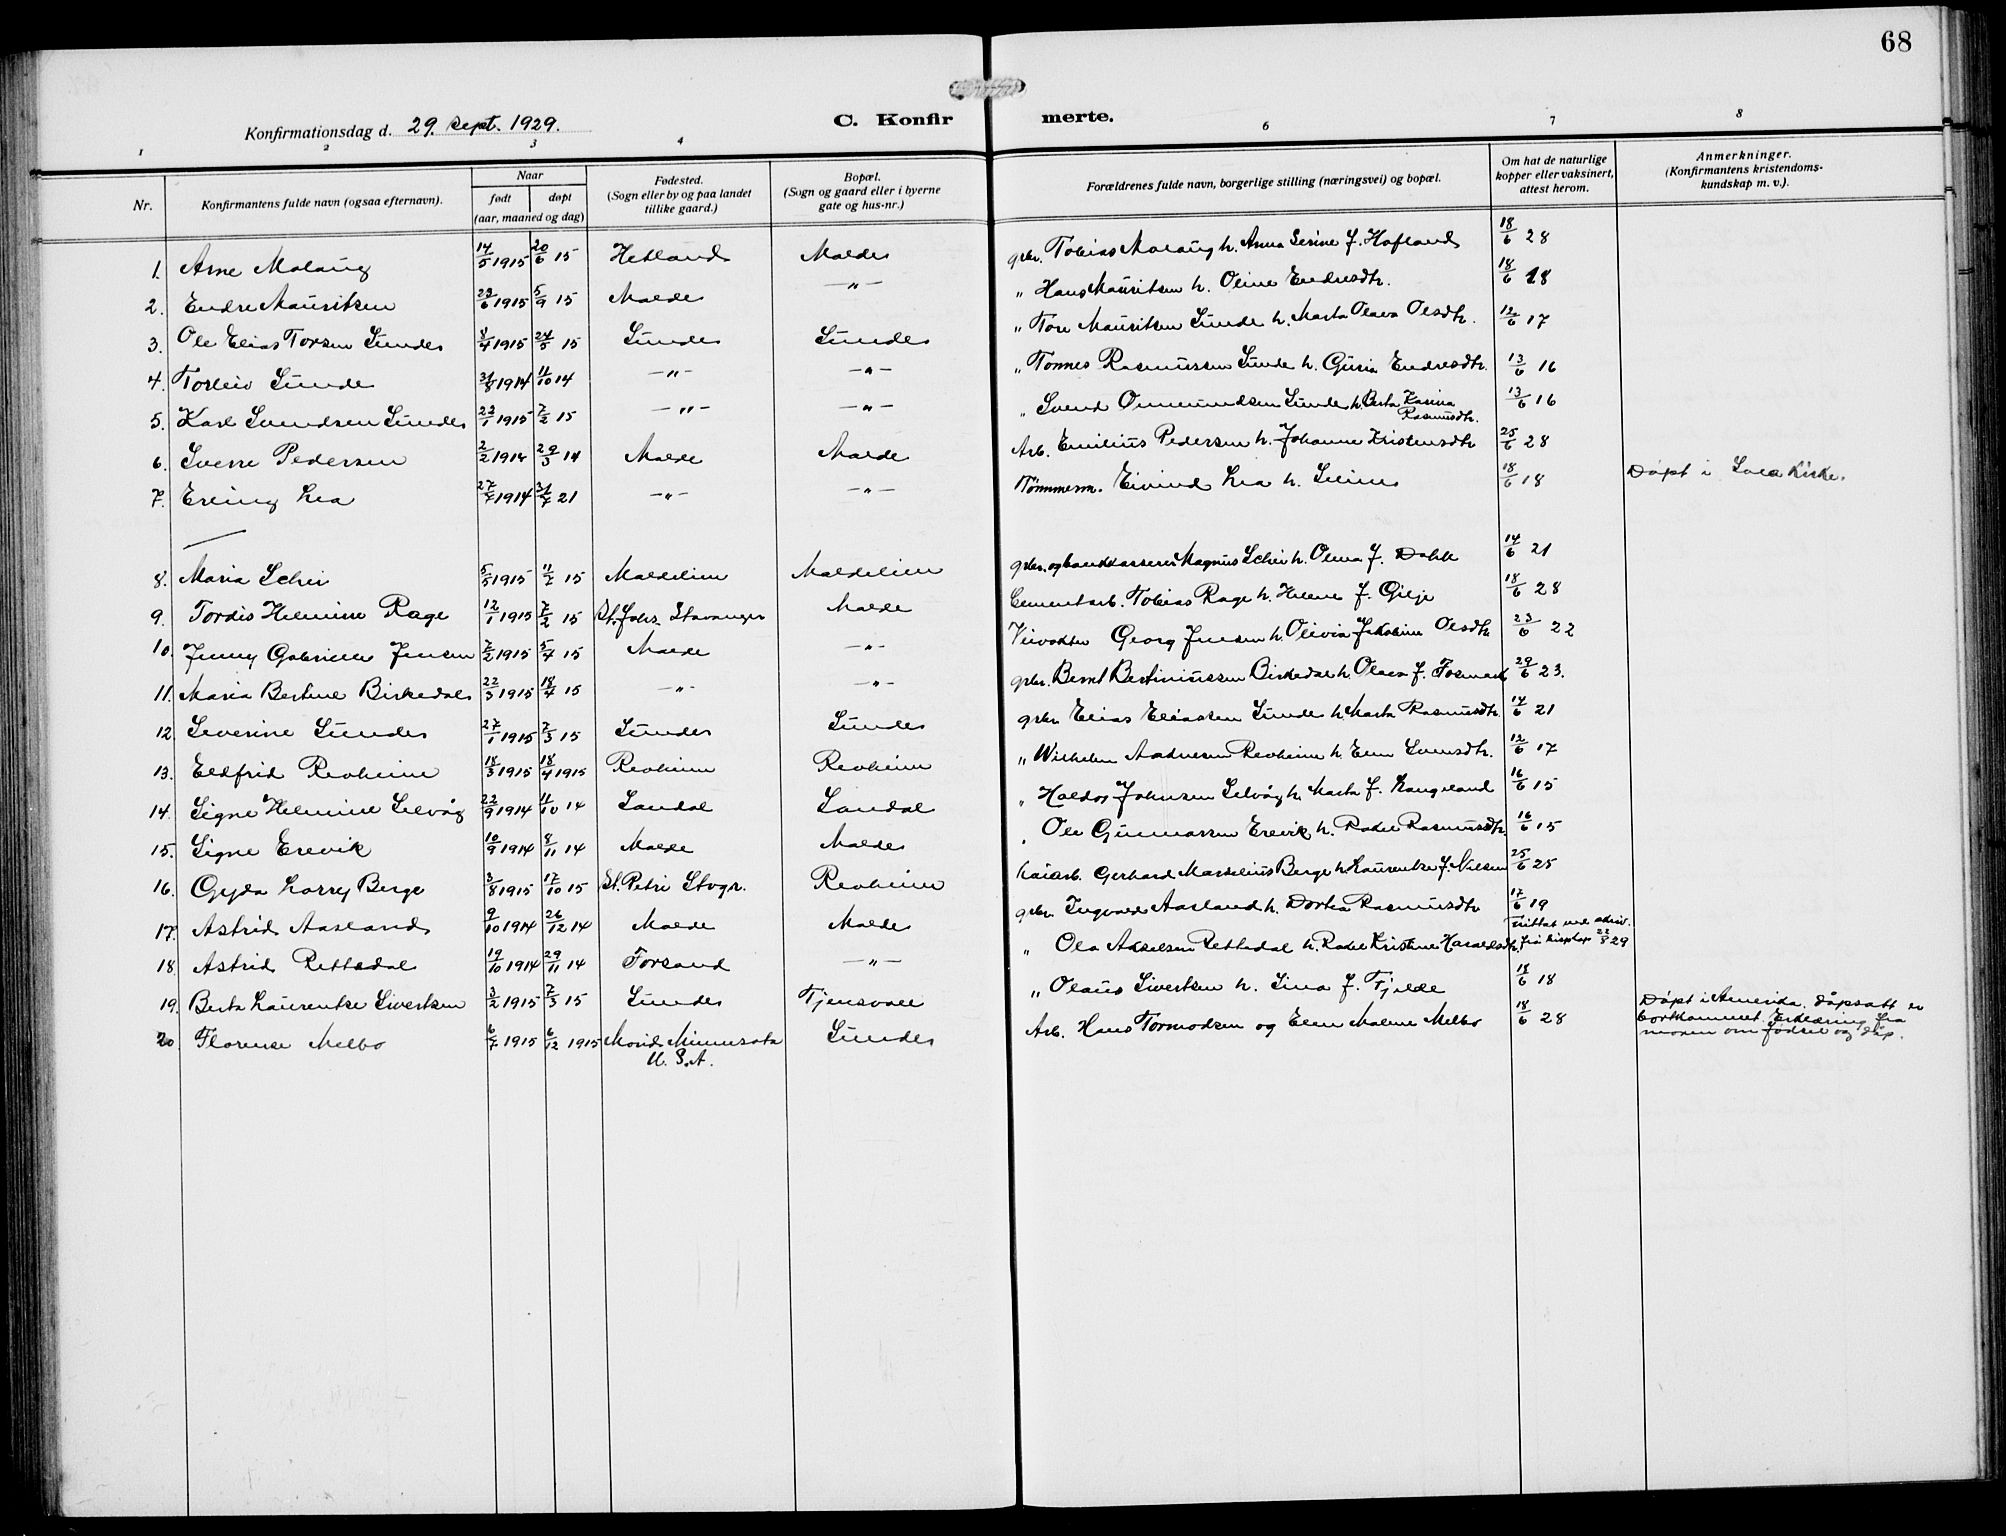 68
Konfirmationsdag d. 29. sept. 1929.
C. Konfirmerte.
1 2 3 4 6 7 8
Nr. Konfirmantens fulde navn (ogsaa efternavn). Naar født døpt (aar, maaned og dag) Fødested. (Sogn eller by og paa landet tillike gaard.) Bopæl. (Sogn og gaard eller i byerne gate og hus-nr.) Forældrenes fulde navn, borgerlige stilling (næringsvei) og bopæl. Om hat de naturlige kopper eller vaksinert, attest herom. Anmerkninger. (Konfirmantens kristendoms-kundskap m. v.).
1. Arne Malaug 14/5 1915 20/6 15 Hetland Malde gbr. Tobias Malaug h. Anna Serine f. Hafland 18/6 28
2. Endre Mauritsen 23/6 1915 5/9 15 Malde —"— " Hans Mauritsen h. Oline Endresdtr. 18/6 18
3. Ole Elias Torsen Sunde 8/4 1915 24/5 15 Sunde Sunde " Tore Mauritsen Sunde h. Marta Olava Olsdtr. 12/6 17
4. Torleiv Sunde 31/8 1914 11/10 14 —"— —"— " Tonnes Rasmussen Sunde h. Guria Endresdtr. 13/6 16
5. Karl Svendsen Sunde 22/1 1915 7/2 15 —"— —"— " Svend Ommundsen Sunde h. Berta Karina Rasmusdtr. 13/6 16
6. Sverre Pedersen 2/2 1914 29/3 14 Malde Malde Arb. Emilius Pedersen h. Johanne Kristensdtr 25/6 28
7. Erling Lea 27/7 1914 31/7 21 —"— —"— Tømmerm. Eivind Lea h. Seline 18/6 18 Døpt i Svea Kirke.
8. Maria Schei 5/5 1915 11/7 15 Maldelien Maldelien gbr. og landkasserer Magnus Schei h. Olena f. Dahle 14/6 21
9. Tordis Helmine Rage 12/1 1915 7/2 15 St. Johs. Stavanger Malde Cementarb. Tobias Rage h. Helene f. Gilje 18/6 28
10. Jenny Gabrielle Jensen 7/2 1915 5/4 15 Malde —"— Veivokter Georg Jensen h. Olivia Jakobine Olsdtr 23/6 22
11. Maria Bertine Birkedal 22/3 1915 18/4 15 —"— —"— gbr. Bernt Bertiniussen Birkedal h. Olava f. Fosmark 29/6 23.
12. Severine Sunde 27/1 1915 7/3 15 Sunde Sunde gbr Elias Eliassen Sunde h. Marta Rasmusdtr. 14/6 21
13. Eldfrid Revheim 18/3 1915 18/4 1915 Revheim Revheim " Wilhelm Aadnesen Revheim h Elen Svensdtr. 12/6 17
14. Signe Helmine Selvåg 22/9 1914 11/10 14 Sandal Sandal " Haldor Johnsen Selvåg h. Marta f. Haugeland 16/6 15
15. Signe Erevik 10/9 1914 8/11 14 Malde Malde " Ole Gunnarsen Erevik h. Rakel Rasmusdtr. 16/6 15
16. Gyda Lorry Berge 3/8 1915 17/10 15 St. Petri Stvgr. Revheim Kaiarb. Gerhard Marselius Berge h. Laurentse f. Nilsen 25/6 25
17. Astrid Aasland 9/10 1914 26/12 14 Malde Malde gbr. Ingvald Aasland h. Dortea Rasmusdtr 17/6 19
18. Astrid Rettedal 19/10 1914 29/11 14 Forsand —"— " Ola Akselsen Rettedal h. Rakel Kristine Haraldsdtr. Frittat ved skriv. fra bisp 22/8 29
19. Berta Laurentse Sivertsen 3/2 1915 7/3 15 Sunde Tjensvoll " Olaus Sivertsen h. Sina f. Fjelde 18/6 18
20. Florense Melbo 6/7 1915 6/12 1915 Minnesota U. S. A. Sunde Arb. Hans Tormodsen og Elen Malene Melbo 18/6 28 Døpt i Amerika. Dåpsatt. er bortkommet. Erklæring fra moren om fødsel og dåp.